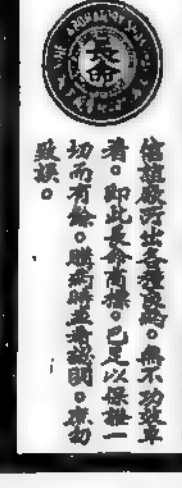 長命
信誼廠所出各種良藥。無不功效卓
著。即此長命商標。已足以保證一
切而有餘。購藥時請認明。庶勿
致誤。